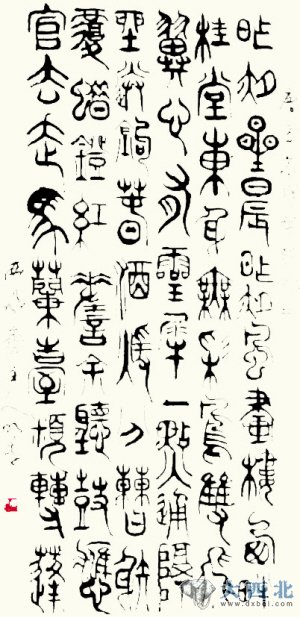 昨夜星辰昨夜風畫樓西畔
桂堂東身無彩鳳雙飛
翼心有靈犀一點通隔
座送鉤春酒暖分曹射
覆蠟鐙紅嗟余聽鼓應
官去走馬蘭臺類轉蓬
大西北
www.dxbei.com